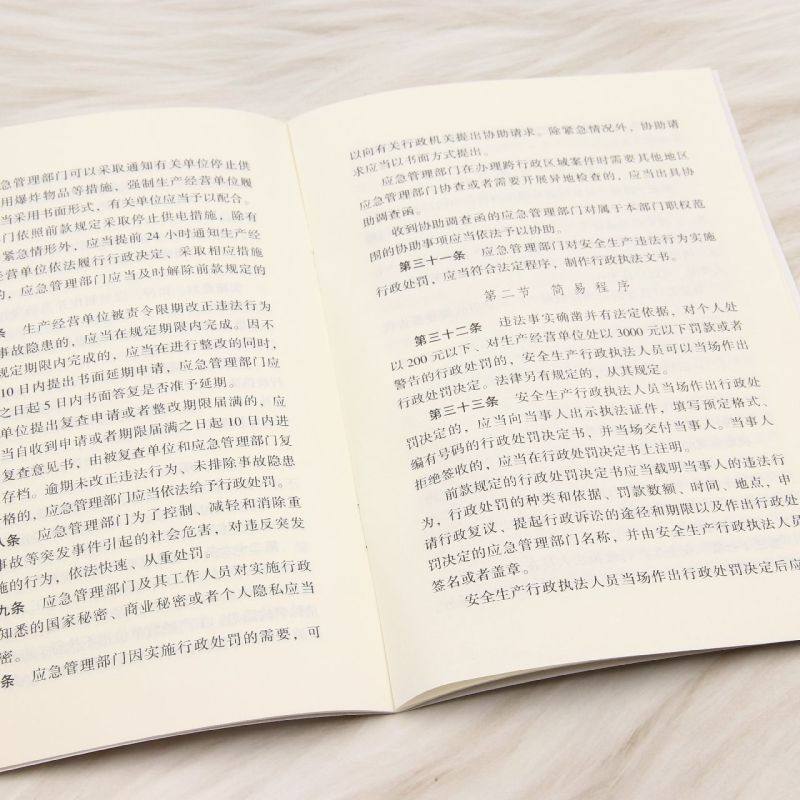 急管理部门可以采取通知有关单位停止供
用爆炸物品等措施，强制生产经营单位履
当采用书面形式，有关单位应当予以配合。
门依照前款规定采取停止供电措施，除有
紧急情形外，应当提前 24 小时通知生产经
经营单位依法履行行政决定、采取相应措施
的，应急管理部门应当及时解除前款规定的
条　生产经营单位被责令限期改正违法行为
事故隐患的，应当在规定期限内完成。因不
规定期限内完成的，应当在进行整改的同时，
10 日内提出书面延期申请，应急管理部门应
之日起 5 日内书面答复是否准予延期。
单位提出复查申请或者整改期限届满的，应
当自收到申请或者期限届满之日起 10 日内进
复查意见书，由被复查单位和应急管理部门复
存档。逾期未改正违法行为、未排除事故隐患
格的，应急管理部门应当依法给予行政处罚。
八条　应急管理部门为了控制、减轻和消除重
事故等突发事件引起的社会危害，对违反突发
施的行为，依法快速、从重处罚。
九条　应急管理部门及其工作人员对实施行政
知悉的国家秘密、商业秘密或者个人隐私应当
密。
条　应急管理部门因实施行政处罚的需要，可
以向有关行政机关提出协助请求。除紧急情况外，协助请
求应当以书面方式提出。
应急管理部门在办理跨行政区域案件时需要其他地区
应急管理部门协查或者需要开展异地检查的，应当出具协
助调查函。
收到协助调查函的应急管理部门对属于本部门职权范
围的协助事项应当依法予以协助。
第三十一条　应急管理部门对安全生产违法行为实施
行政处罚，应当符合法定程序，制作行政执法文书。
第二节　简易程序
第三十二条　违法事实确凿并有法定依据，对个人处
以 200 元以下、对生产经营单位处以 3000 元以下罚款或者
警告的行政处罚的，安全生产行政执法人员可以当场作出
行政处罚决定。法律另有规定的，从其规定。
第三十三条　安全生产行政执法人员当场作出行政处
罚决定的，应当向当事人出示执法证件，填写预定格式、
编有号码的行政处罚决定书，并当场交付当事人。当事人
拒绝签收的，应当在行政处罚决定书上注明。
前款规定的行政处罚决定书应当载明当事人的违法行
为，行政处罚的种类和依据、罚款数额、时间、地点，申
请行政复议、提起行政诉讼的途径和期限以及作出行政处
罚决定的应急管理部门名称，并由安全生产行政执法人员
签名或者盖章。
安全生产行政执法人员当场作出行政处罚决定后应